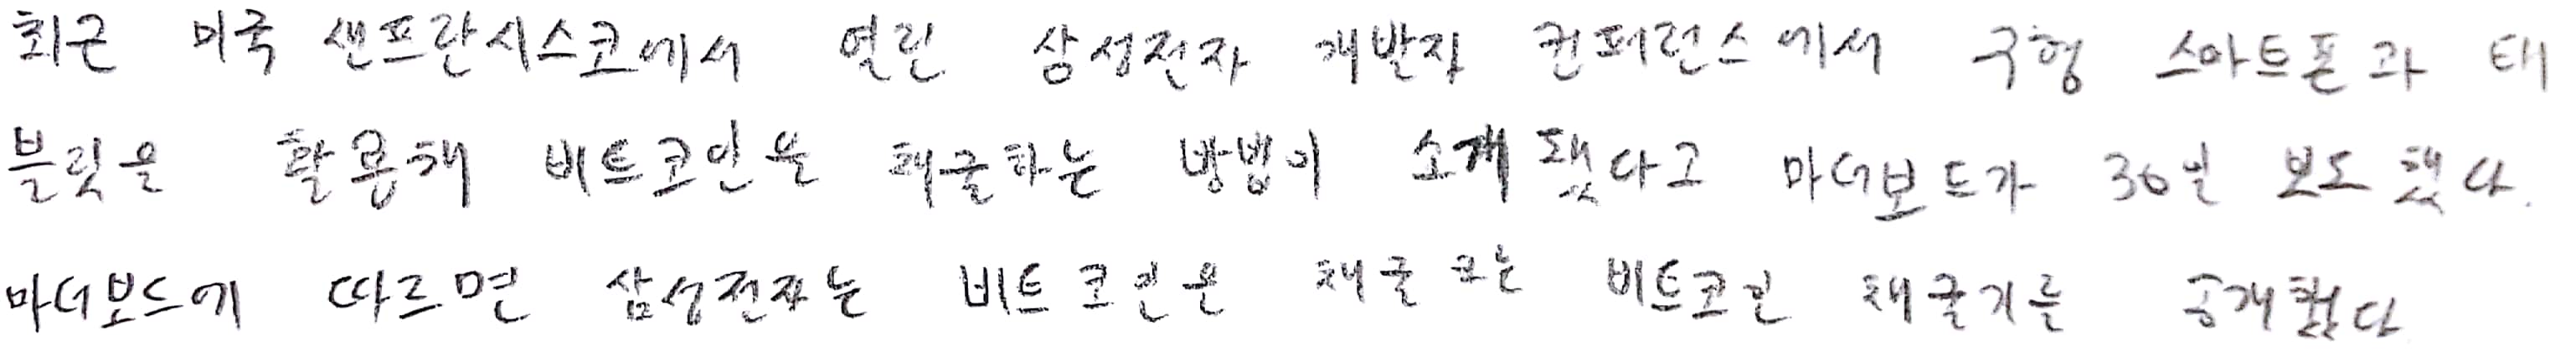 최근 미국 샌프란시스코에서 열린 삼성전자 개발자 컨퍼런스에서 구형 스마트폰과 태
블릿을 활용해 비트코인을 채굴하는 방법이 소개됐다고 마더보드가 30일 보도했다.
마더보드에 따르면 삼성전자는 비트코인은 채굴 비트코인 채굴기를 공개했다